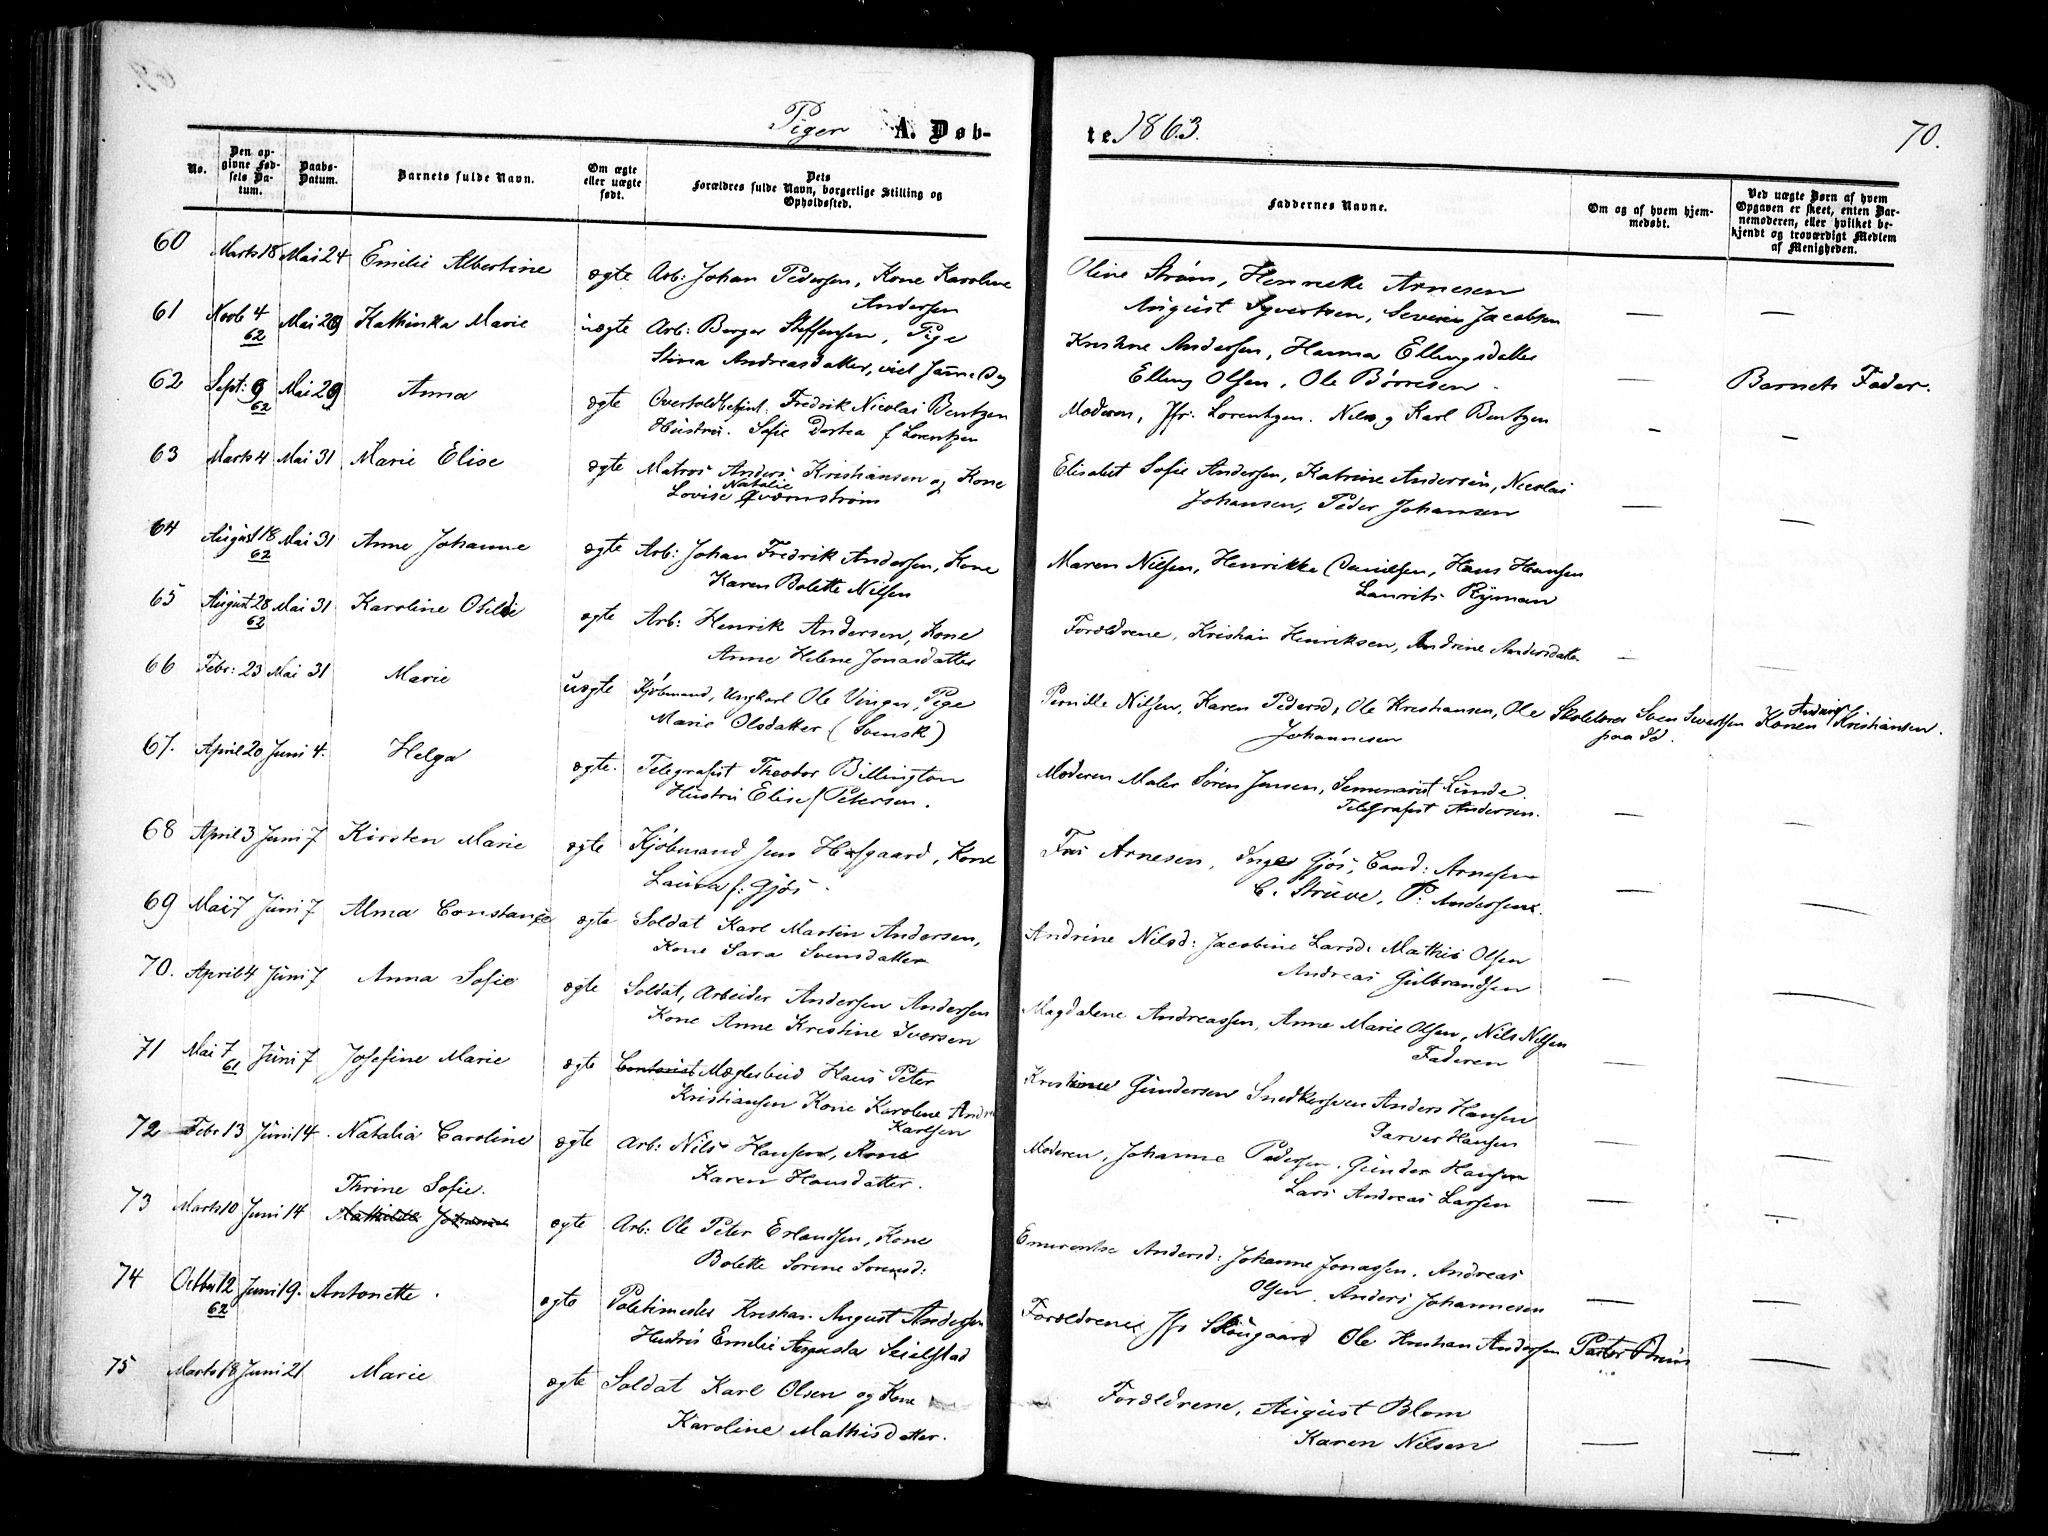 Piger A. Døb-
te 1863.
70.
No.
Den op-
givne Fød-
sels Da-
tum.
Daabs-
Datum.
Barnets fulde Navn.
Om ægte
eller uægte
født.
Dets
Forældres fulde Navn, borgerlige Stilling og
Opholdssted.
Faddernes Navne.
Om og af hvem hjem-
medøbt.
Ved uægte Børn af hvem
Opgaven er skeet, enten Bar-
nemoderen, eller hvilket be-
kjendt og troværdigt Medlem
af Menigheden.
60 Marts 18 Mai 24 Emilie Albertine ægte Arb: Johan Pedersen, Kone Karoline
Andersen
Oline Strøm, Henriette Arnesen
August Syvertsen, Severin Jacobsen — —
61 Novb 4 Mai 29 Kathinka Marie uægte Arb: Berger Steffensen, Pige
62
Stina Andreasdatter,
Kristine Andersen, Hanna Ellingsdatter
Elling Olsen, Ole Børresen. Barnets Fader.
62 Sept: 9 Mai 29 Anna ægte Overtoldbetjent: Fredrik Nicolai Bentzen
62
Hustru. Sofie Dortea f Lorentzen
Moderen, Jfr: Lorentzen. Nils og Karl Bentzen — —
63 Marts 4 Mai 31 Marie Elise ægte Matros Anders Kristiansen og Kone
Natalie
Lovise Qvarnstrøm
Elisabet Sofie Andersen, Katrine Andersen, Nicolai
Johansen, Peder Johansen — —
64 August 18 Mai 31 Anne Johanne ægte Arb: Johan Fredrik Andersen, Kone
62
Karen Bolette Nilsen
Maren Nilsen, Henrikke Danielsen, Hans Hansen
Laurits Ryman
65 August 28 Mai 31 Karoline Otilde ægte Arb: Henrik Andersen, Kone
62
Anne Helene Jonasdatter
Forældrene, Kristian Henriksen, Andrine Andersdatter — —
66 Febr: 23 Mai 31 Marie uægte Kjøbmand, Ungkarl Ole Vinger, Pige
Marie Olsdatter (Svensk)
Pernille Nilsen, Karen Pedersd, Ole Kristiansen, Ole Skolelærer Sven Sivertsen Konen Anders Kristiansen.
Johannesen paa Id.
67. April 20 Juni 4. Helga ægte. Telegrafist Theodor Billington
Hustru Elise f Petersen.
Moderen Maler Søren Jensen, Seminarist Linde.
Telegrafist Andersen. — —
68 April 3 Juni 7 Kirsten Marie ægte Kjøbmand Jens Hafgaard, Kone
Laura f: Gjøs.
Fru Arnesen, Inger Gjøs, Cand: Arnesen
C. Struve, P. Andersen. — —
69 Mai 7 Juni 7 Alma Constance ægte Soldat Karl Martin Andersen,
Kone Sara Svensdatter
Andrine Nilsd: Jacobine Larsd: Mathis Olsen
Andreas Gulbrandsen — —
70. April 4 Juni 7 Anna Sofie ægte Soldat, Arbeider Andersen Andersen
Kone Anne Kristine Iversen
Magdalene Andreassen, Anne Marie Olsen, Nils Nilsen
Faderen — —
71 Mai 7 Juni 7 Josefine Marie ægte Contorist Mæglerbud Hans Peter
61
Kristiansen Kone Karoline Andr
Karlsen
Kristiane Gundersen Snedkersven Anders Hansen
Garver Hansen — —
72 Febr 13 Juni 14. Natalia Caroline ægte Arb: Nils Hansen, Kone
Karen Hansdatter.
Moderen, Johanne Pedersen. Gunder Hansen
Lars Andreas Larsen — —
Thrine Sofie.
73 Marts 10 Juni 14 Mathilde Johanne ægte Arb: Ole Peter Erlandsen, Kone
Bolette Sorine Sorensd:
Emerentse Andersd: Johanne Jonassen. Andreas
Olsen. Anders Johannesen — —
74 Octber 12 Juni 19. Antonette. ægte Politimester Kristian August Andersen
62
Hustru Emilie Augusta Seielstad
Forældrene, Jfr Skougaard Ole Kristian Andersen Pastor Bruun —
75 Marts 18 Juni 21 Marie ægte Soldat Karl Olsen og Kone
Karoline Mathisdatter.
Forældrene, August Blom
Karen Nilsen — —